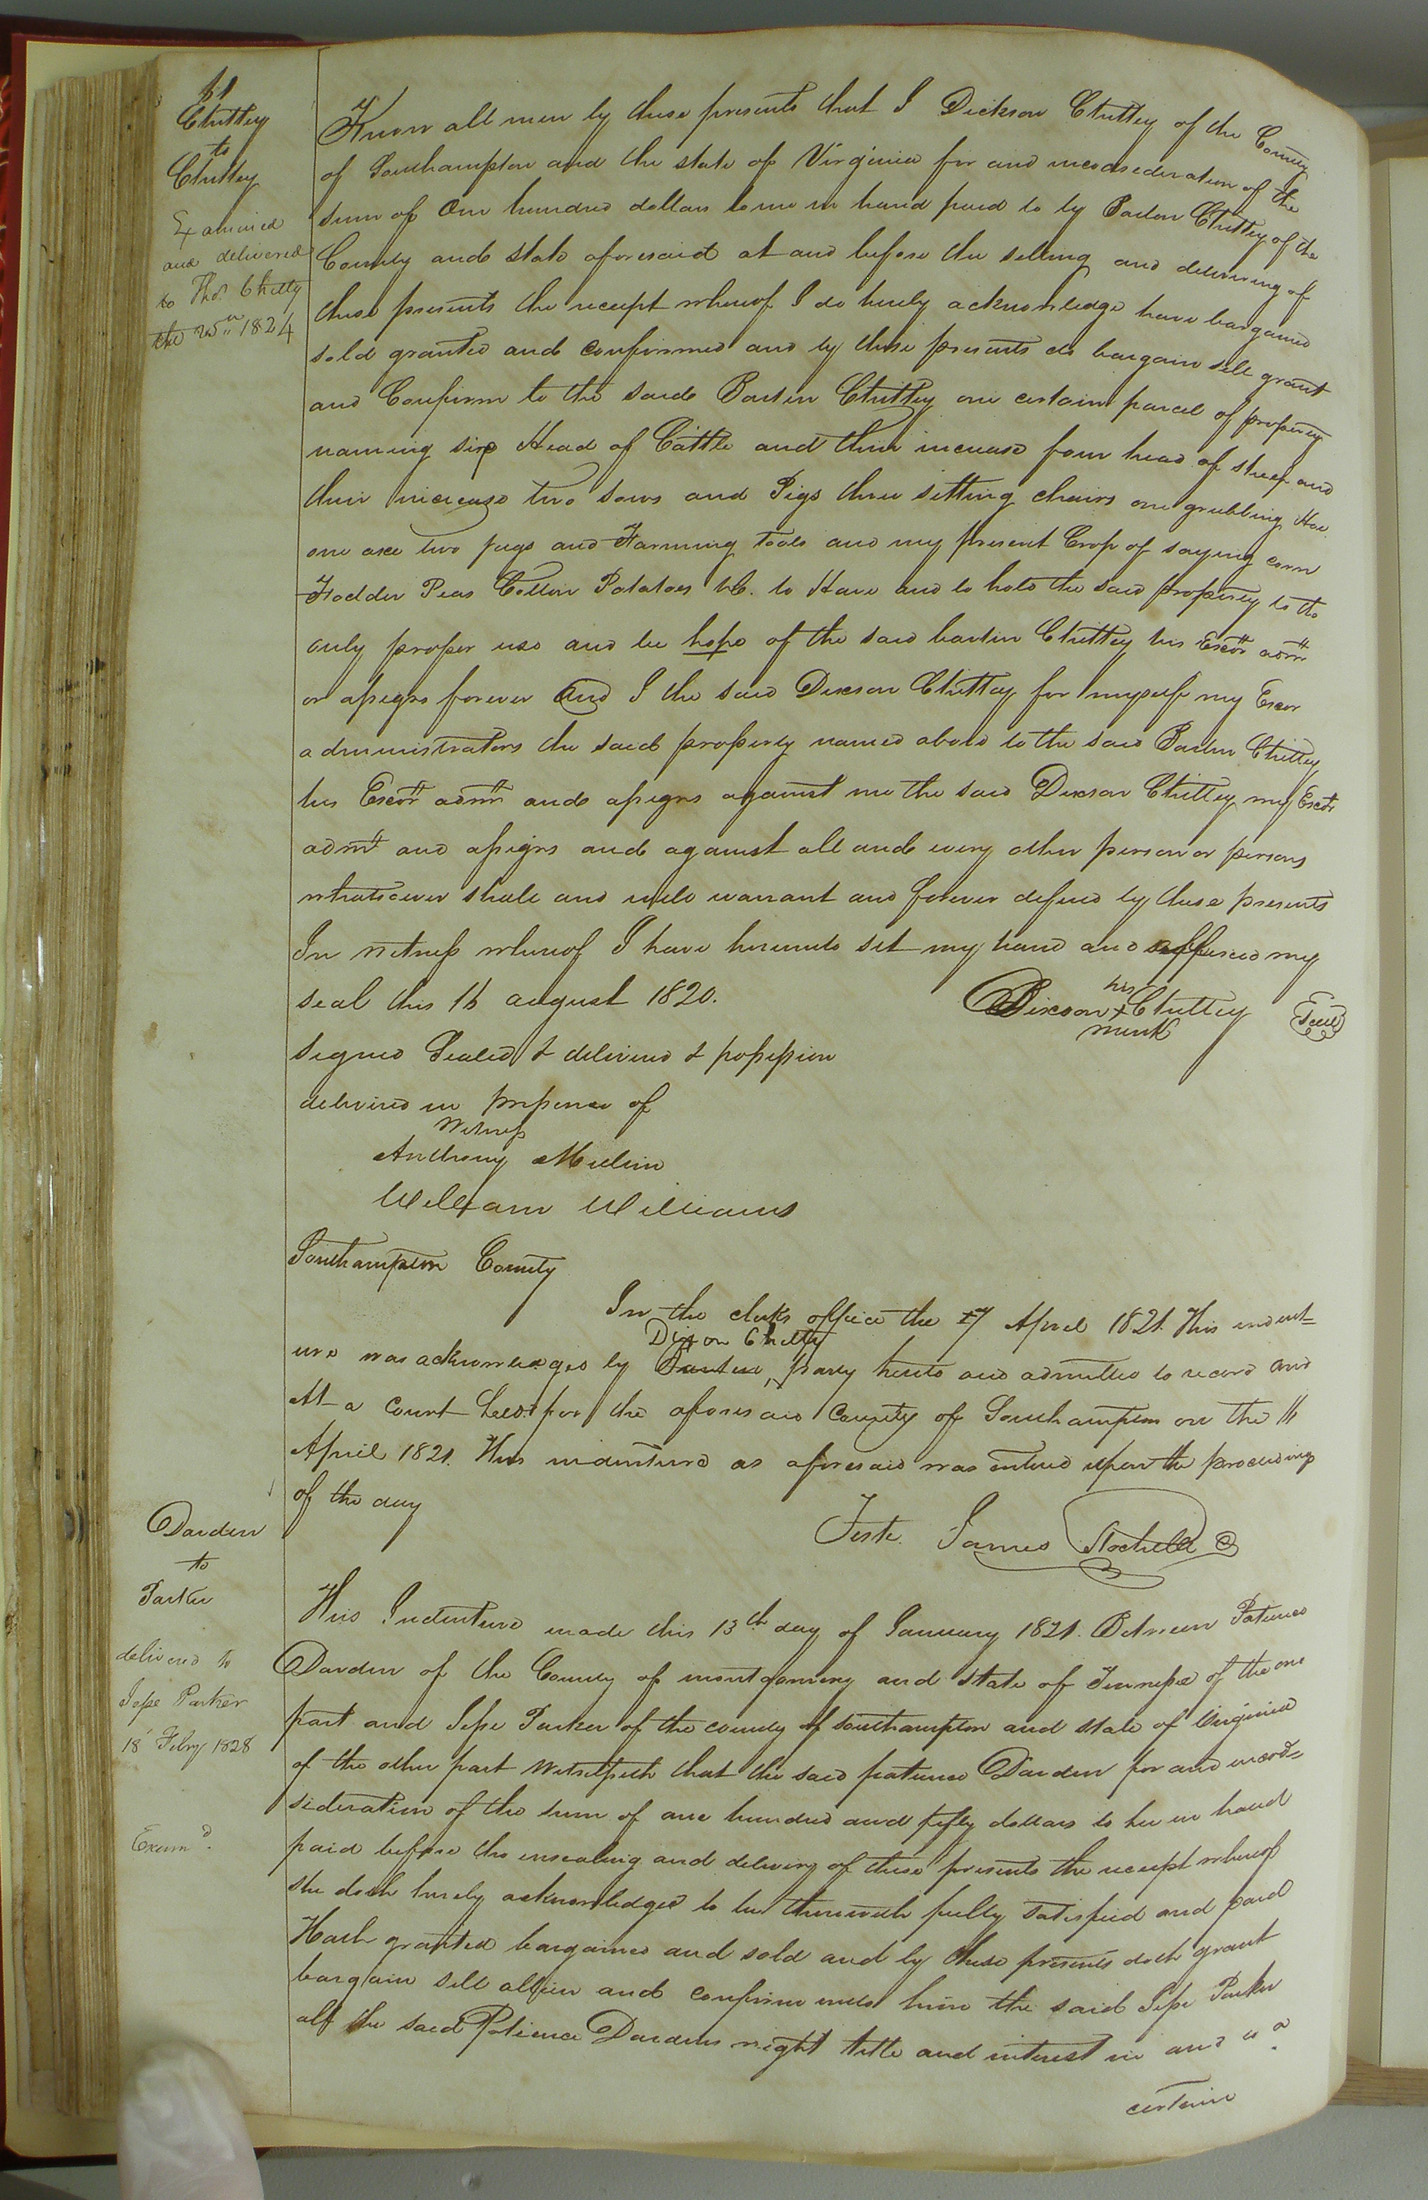 Chittey
to
Chittey
Examined
and delivered
to Thos Chitty
the 1824
Know all men by these presents that I Dickson Chittey of the County
of Southampton and the state of Virginia for and inconsideration of the
sum of One hundred dollars to me in hand paid to by Barlen Chittey of the
County and state aforesaid at and before the selling and delivering of
these presents the receipt whereof I do hereby acknowledge have bargained
sold granted and confirmed and by these presents do bargain sell grant
and Confirm to the said Barlin Chittey one certain parcel of property
naming six Head of Cattle and their increase four head of sheep and
their increase two sows and Pigs three setting chairs one grubbing Hoe
one axe two jugs and Farming tools and my present Crop of saying corn
Fodder Peas Cotton Potatoes &C. to Have and to hold the said property to the
only proper use and be hope of the said barlin Chittey his Excrs admrs
or assigns forever And I the said Dixson Chittey for myself my Excor
administrators the said property named above to the said Barlin Chittey
his Excrs admrs and assigns against me the said Dixson Chittey my Excrs
admrs and assigns and against all and every other person or persons
whatsoever shall and will warrant and forever defend by these presents
In witness whereof I have hereunto set my hand and affixed my
seal this 16 august 1820.
his
Dixson + Chittey Seal
mark
Signed Sealed & delivered & possession
delivered in presence of
Witness
Anthony
William Williams
Southampton County
In the clerks office the 17 April 1821. This indent=
Dixon Chitty
ure was acknowledged by Barlin, party hereto and admitted to record and
At a court held for the aforesaid County of Southampton on the 16
April 1821. This indenture as aforesaid was entered upon the proceedings
of the day
Teste. James Rochelle C
Darden
to
Parker
delivered to
Jesse Parker
18 Feby 1828
Examd.
This Indenture made this 13th day of January 1821. Between Patience
Darden of the County of montgomery and State of Tennessee of the one
part and Jesse Parker of the county of Southampton and state of Virginia
of the other part Witnesseth that the said patience Darden for and incon=
sideration of the sum of one hundred and fifty dollars to her in hand
paid before the ensealing and delivery of these presents the receipt whereof
she doth hereby acknowledged to be therewith fully satisfied and paid
Hath granted bargained and sold and by these presents doth grant
bargain sell allien and confirm unto him the said Jesse Parker
all the said Patience Dardens right title and interest in and to a
certain